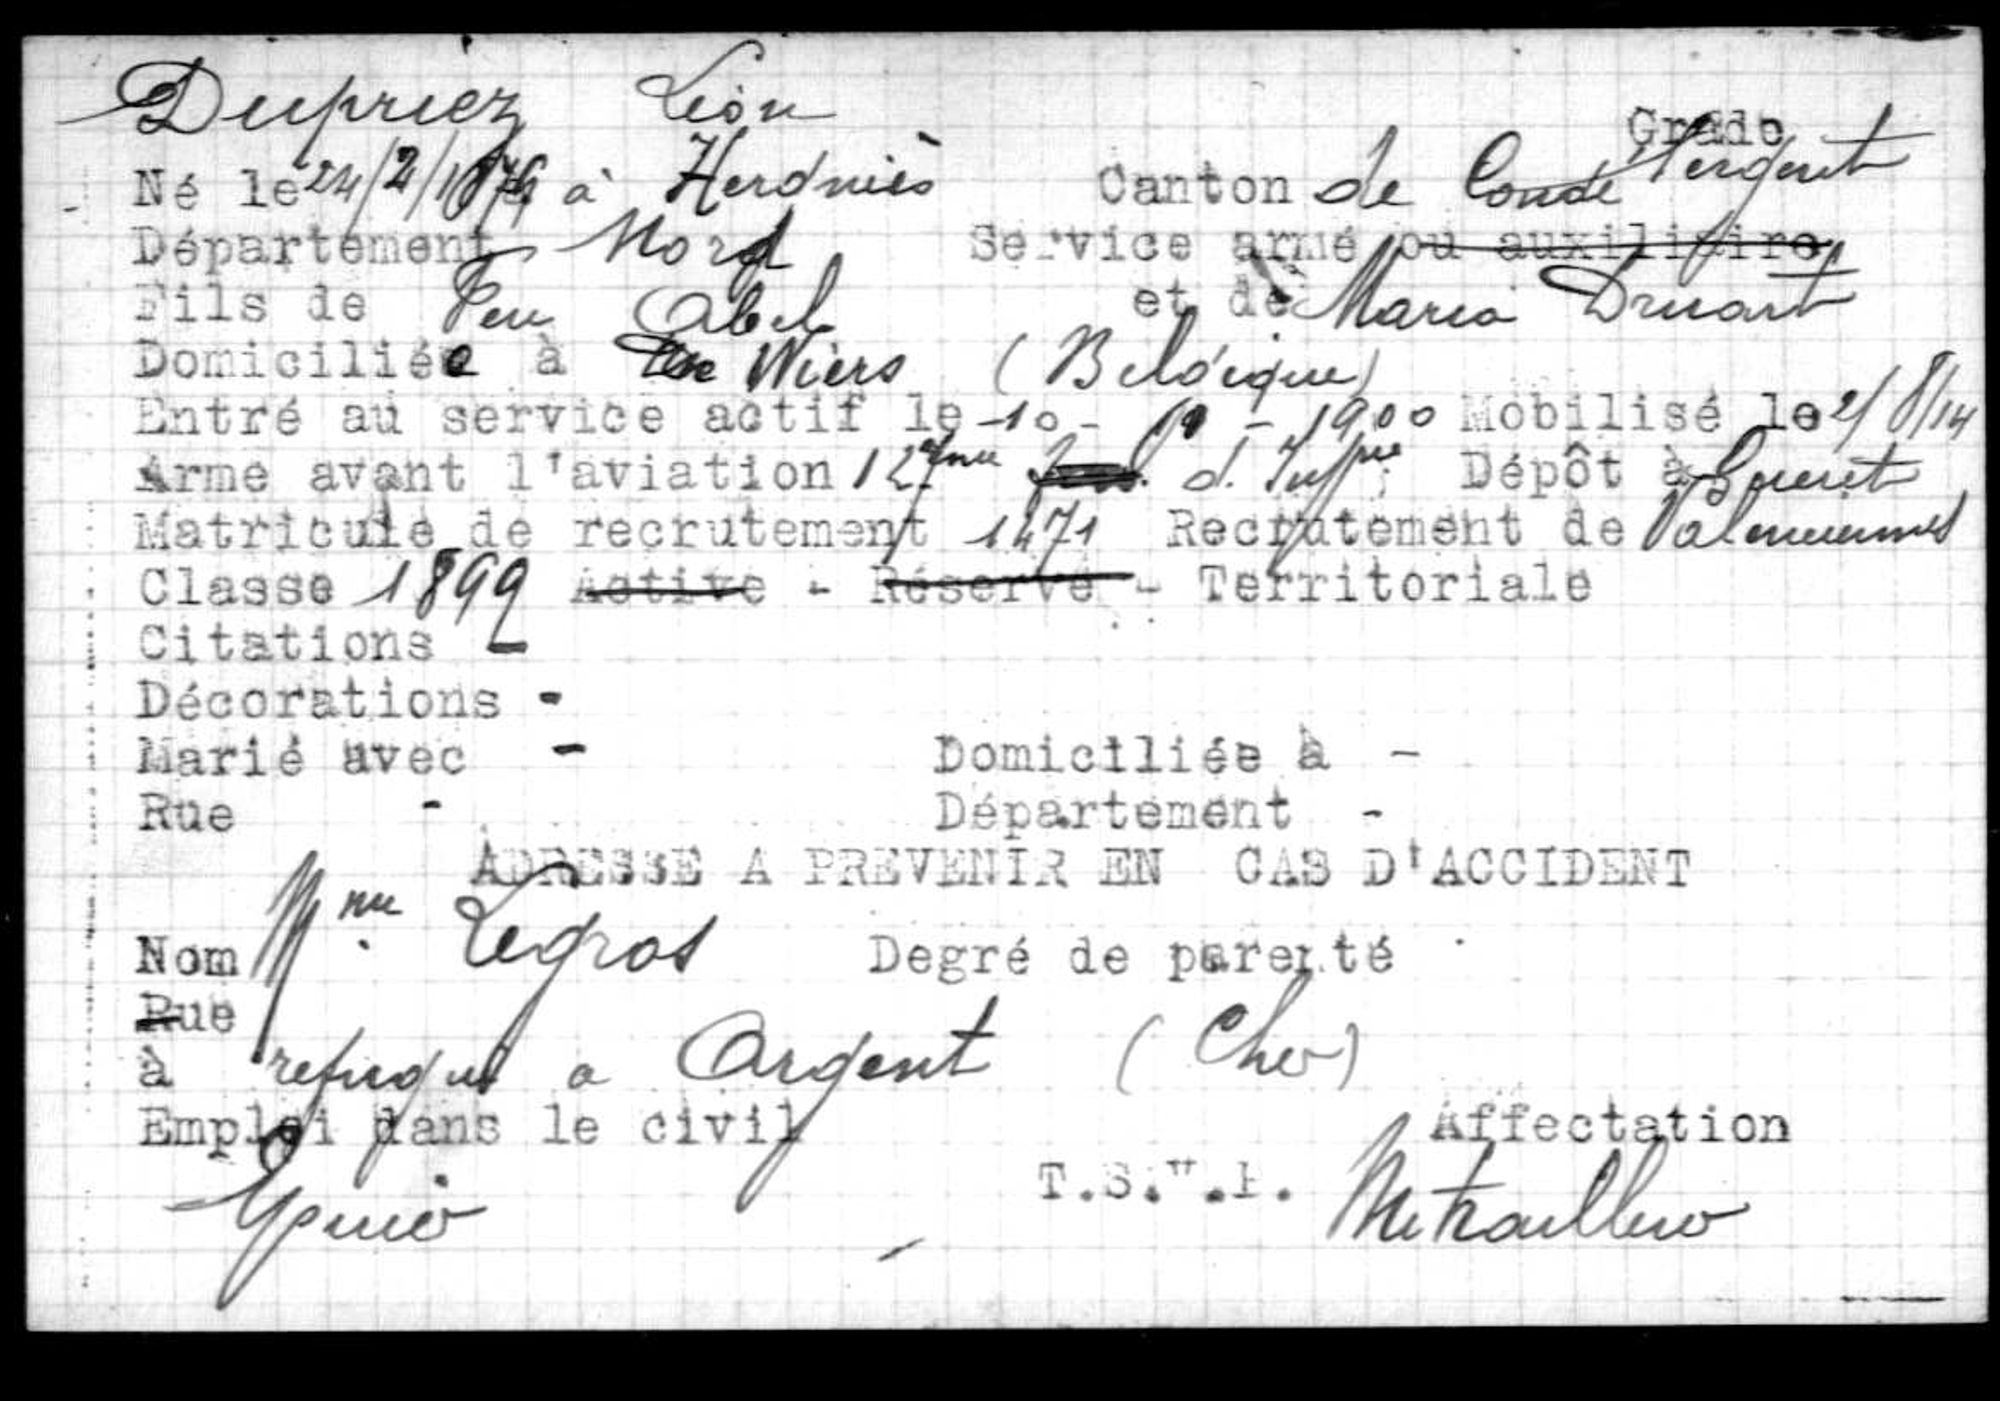 Dupriez Léon
Grade Sergent
Né le 24/2/1879 à Herdniès Canton de Condé
Département Nord Service armé ou auxiliaire
Fils de Feu Abel et de Maria Druart
Domiciliée à Wiers (Belgique)
Entré au service actif le -10- - 1900 Mobilisé le 2/8/14
Arme avant l'aviation 127me d'Inf Dépôt à Gueret
Matricule de recrutement 1471 Recrutement de Valenciennes
Classe 1899 Active - Réserve - Territoriale
Citations -
Décorations -
Marié avec - Domiciliée à -
Rue - Département -
ADRESSE A PREVENIR EN CAS D'ACCIDENT
Nom Mme Legros Degré de parenté
Rue
à refugié a Argent (Cher)
Emploi dans le civil Affectation
T.S.V.P. Mitrailleur